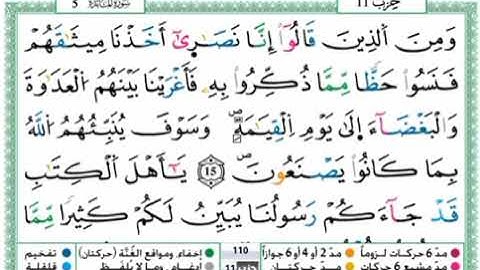 حزب 11 سورة المائدة 5
وَمِنَ ٱلَّذِينَ قَالُوٓا۟ إِنَّا نَصَـٰرَىٰٓ أَخَذْنَا مِيثَـٰقَهُمْ
فَنَسُوا۟ حَظًّا مِّمَّا ذُكِّرُوا۟ بِهِۦ فَأَغْرَيْنَا بَيْنَهُمُ ٱلْعَدَاوَةَ
وَٱلْبَغْضَآءَ إِلَىٰ يَوْمِ ٱلْقِيَـٰمَةِ ۖ وَسَوْفَ يُنَبِّئُهُمُ ٱللَّهُ
بِمَا كَانُوا۟ يَصْنَعُونَ ۖ 15 يَـٰٓأَهْلَ ٱلْكِتَـٰبِ
قَدْ جَآءَكُمْ رَسُولُنَا يُبَيِّنُ لَكُمْ كَثِيرًا مِّمَّا
مدّ 6 حركات لزوماً مدّ 2 أو 4 أو 6 جوازاً 110 إخفاء، ومواقع الغنّة (حركتان) تفخيم
مدّ مشبع 6 حركات مدّ حركتان 11 إدغام، وما لا يُلفظ قلقلة